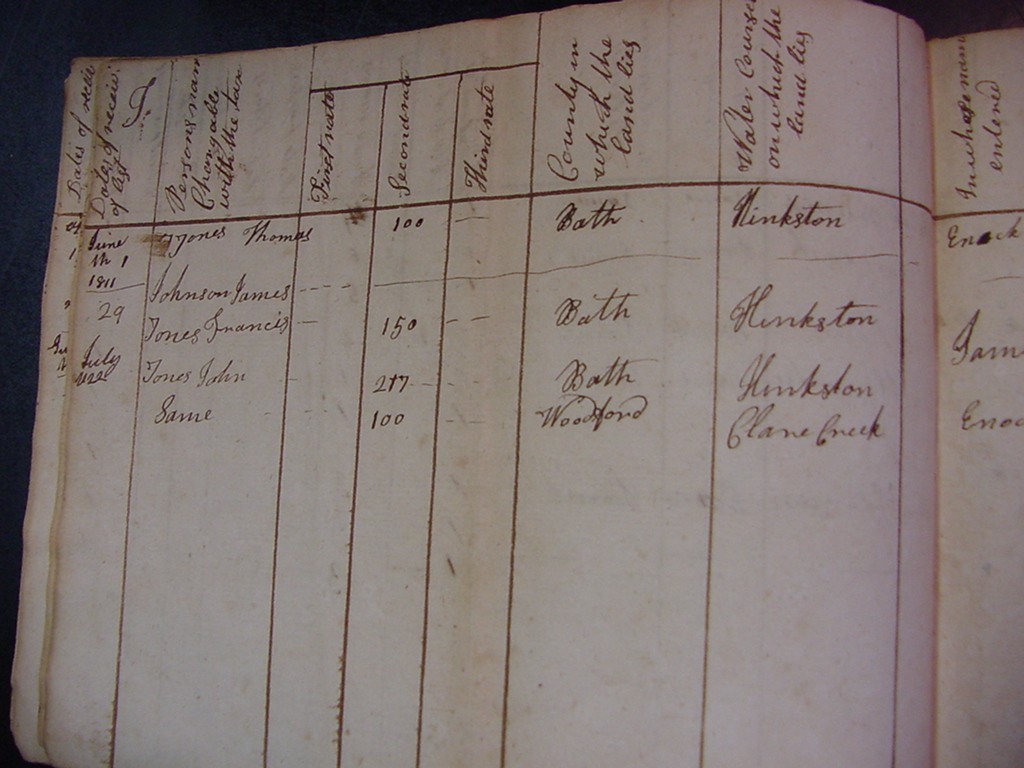 Dates of
Dates of receiv.
of list
J
Persons nam
Chargable
with the tax
First rate
Second rate
Third rate
County in
which the
land lies
Water Course
on which the
land lies
In whose name
enterd
June Jones Thomas 100 — Bath Hinkston Enock
1
1811
Johnson James
29
Jones Francis — 150 — — Bath Hinkston Jam
July
Jones John — 217 — Bath Hinkston
Same 100 — — Woodford Clane Creek Enoc